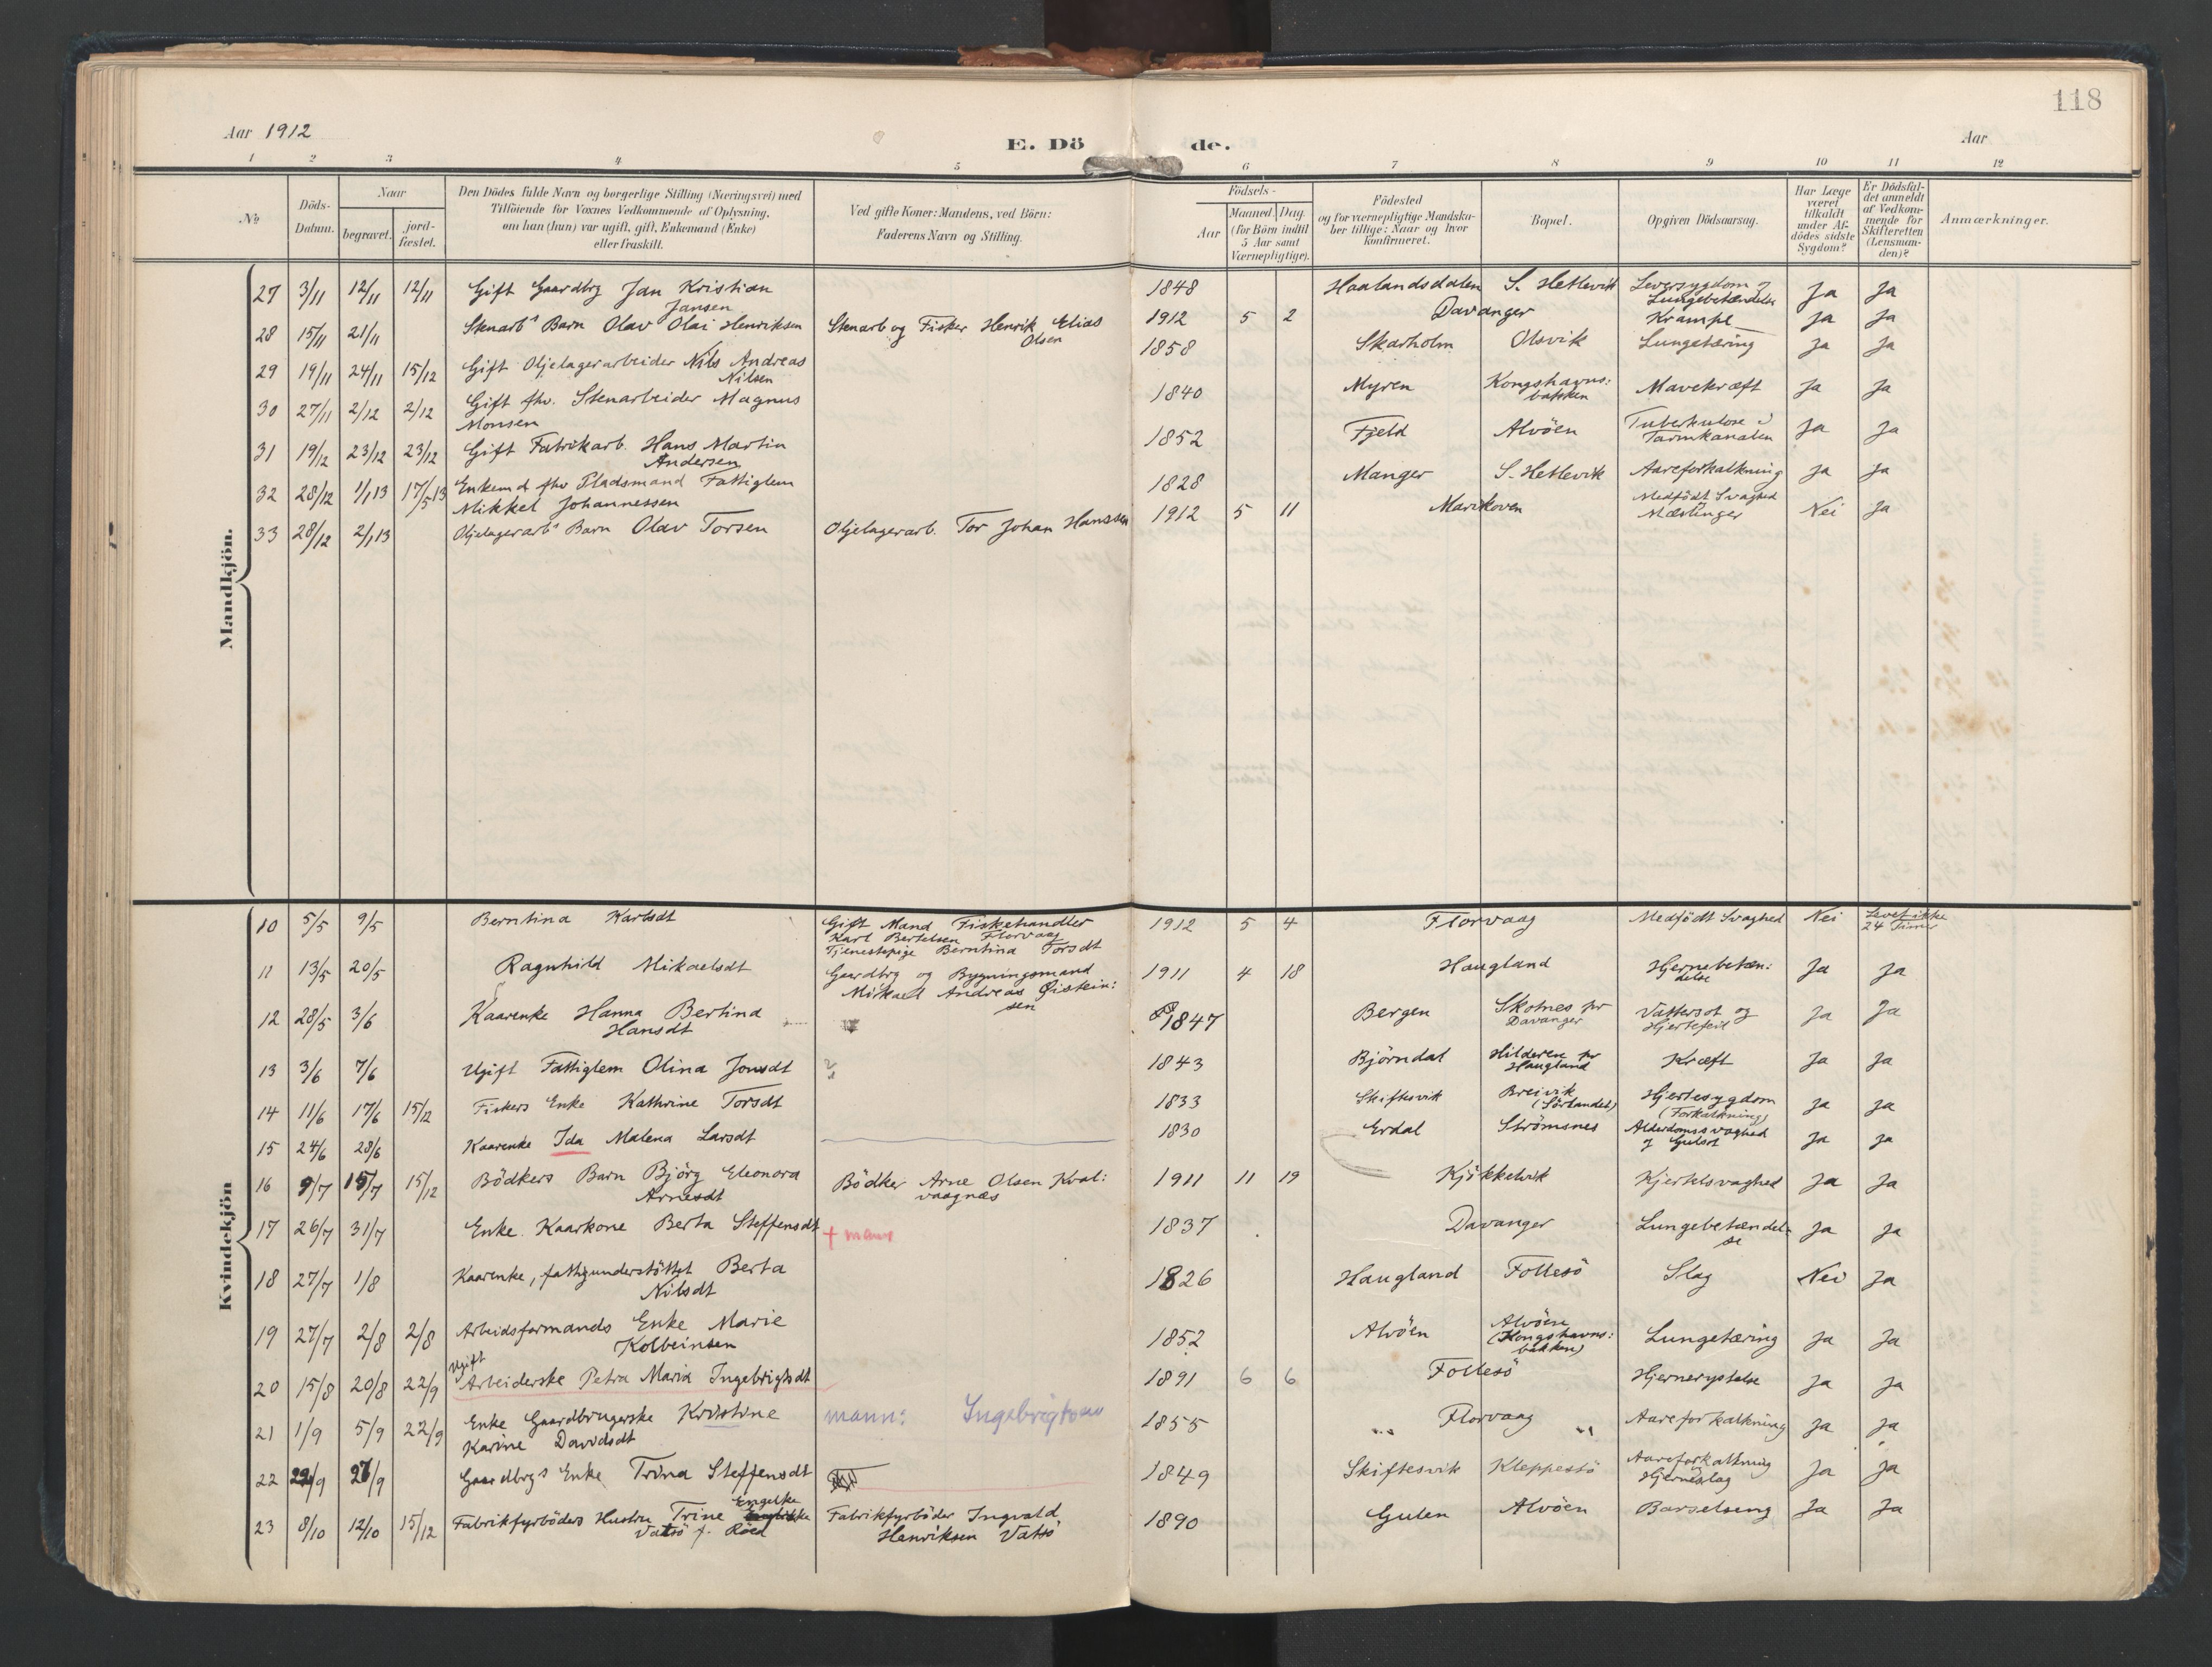 118
Aar 1912
E. Dö de.
Aar
1 2 3 4 5 6 7 8 9 10 11 12
No
Döds-Datum.
Naar
begravet.
jord-fæstet.
Den Dödes fulde Navn og borgerlige Stilling (Næringsvei) med
Tilföiende for Voxnes Vedkommende af Oplysning,
om han (hun) var ugift, gift, Enkemand (Enke)
eller fraskilt.
Ved gifte Koner: Mandens, ved Börn:
Faderens Navn og Stilling.
Födsels-
Aar
Maaned. Dag.
(for Börn indtil
5 Aar samt
Værnepligtige).
Födested
og for værnepligtige Mandska-
ber tillige: Naar og hvor
konfirmeret.
Bopæl.
Opgiven Dödsaarsag.
Har Læge
været
tilkaldt
under Af-
dödes sidste
Sygdom?
Er Dödsfal-
det anmeldt
af Vedkom-
mende for
Skifteretten
(Lensman-
den)?
Anmærkninger.
Mandkjön.
27 3/11 12/11 12/11 Gift Gaardbrg Jan Kristian
Jansen
1848 Haalandsdalen S. Hetlevik Leversygdom og
Lungebetændelse
Ja Ja
28 15/11 21/11 Stenarbs Barn Olav Olai Henriksen Stenarb og Fisker Henrik Elias
Olsen
1912 5 2 Davanger Krampe Ja Ja
29 19/11 24/11 15/12 Gift Oljelagerarbeider Nils Andreas
Nilsen
1858 Skarholm Olsvik Lungetæring Ja Ja
30 27/11 2/12 2/12 Gift fhv. Stenarbeider Magnus
Monsen
1840 Myren Kongshavns:
bakken
Mavekræft Ja Ja
31 19/12 23/12 23/12 Gift Fabrikarb. Hans Martin
Andersen
1852 Fjeld Alvöen Tuberkulose i
Tarmkanalen
Ja Ja
32 28/12 1/1 13 17/5 13 Enkemd fhv Pladsmand Fattiglem
Mikkel Johannessen
1828 Manger S. Hetlevik Aareforkalkning Ja Ja
33 28/12 2/1 13 Oljelagerarbs Barn Olav Torsen Oljelagerarb. Tor Johan Hanssen 1912 5 11 Marikoven Medfödt Svaghed
Mæslinger
Nei Ja
Kvindekjön
10 5/5 9/5 Berntina Karlsdt Gift Mand Fiskehandler
Karl Bertelsen Florvaag
Tjenestepige Berntina Torsdt
1912 5 4 Florvaag Medfödt Svaghed Nei Levet ikke
24 Timer
11 13/5 20/5 Ragnhild Mikaelsdt Gaardbrg og Bygningsmand
Mikael Andreas Øistein:
sen
1911 4 18 Haugland Hjernebetæn:
delse
Ja Ja
12 28/5 3/6 Kaarenke Hanna Bertina
Hansdt
1847 Bergen Skotnes pr
Davanger
Vattersot og
Hjertefeil
Ja Ja
13 3/6 7/6 Ugift Fattiglem Olina Jonsdt 1843 Björndal Hilderen pr
Haugland
Kræft Ja Ja
14 11/6 17/6 15/12 Fiskers Enke Kathrine Torsdt 1833 Skiftesvik Breivik
(Sörlandet)
Hjertesygdom
(Forkalkning)
Ja Ja
15 24/6 28/6 Kaarenke Ida Malena Larsdt 1830 Erdal Strömsnes Alderdomssvaghed
og Gulsot
Ja Ja
16 9/7 15/7 15/12 Bödkers Barn Björg Eleonora
Arnesdt
Bödker Arne Olsen Kval:
vaagnæs
1911 11 19 Kjökkelvik Kjertelsvaghed Ja Ja
17 26/7 31/7 Enke. Kaarkone Berta Steffensdt + mann 1837 Davanger Lungebetændel-
se
Ja Ja
18 27/7 1/8 Kaarenke, fattigunderstöttet Berta
Nilsdt
1826 Haugland Follesö Slag Nei Ja
19 27/7 2/8 2/8 Arbeidsformands Enke Marie
Kolbeinsen
1852 Alvöen Alvöen
(Kongshavns:
bakken)
Lungetæring Ja Ja
20 15/8 20/8 22/9 Ugift
Arbeiderske Petra Maria Ingebrigtsdt
1891 6 6 Follesö Hjernerystelse Ja Ja
21 1/9 5/9 22/9 Enke Gaardbrugerske Kristine
Karine Davidsdt
mann: Ingebrigtsen 1855 „ Florvaag „ Aareforkalkning Ja Ja
22 22/9 27/9 Gaardbrgs Enke Trina Steffensdt 1849 Skiftesvik Kleppestö Aareforkalkning
Hjerneslag
Ja Ja
23 8/10 12/10 15/12 Fabrikfyrböders Hustru Trine Engelke
Vatsö f. Röed
Fabrikfyrböder Ingvald
Henriksen Vatsö
1890 Gulen Alvöen Barselseng Ja Ja